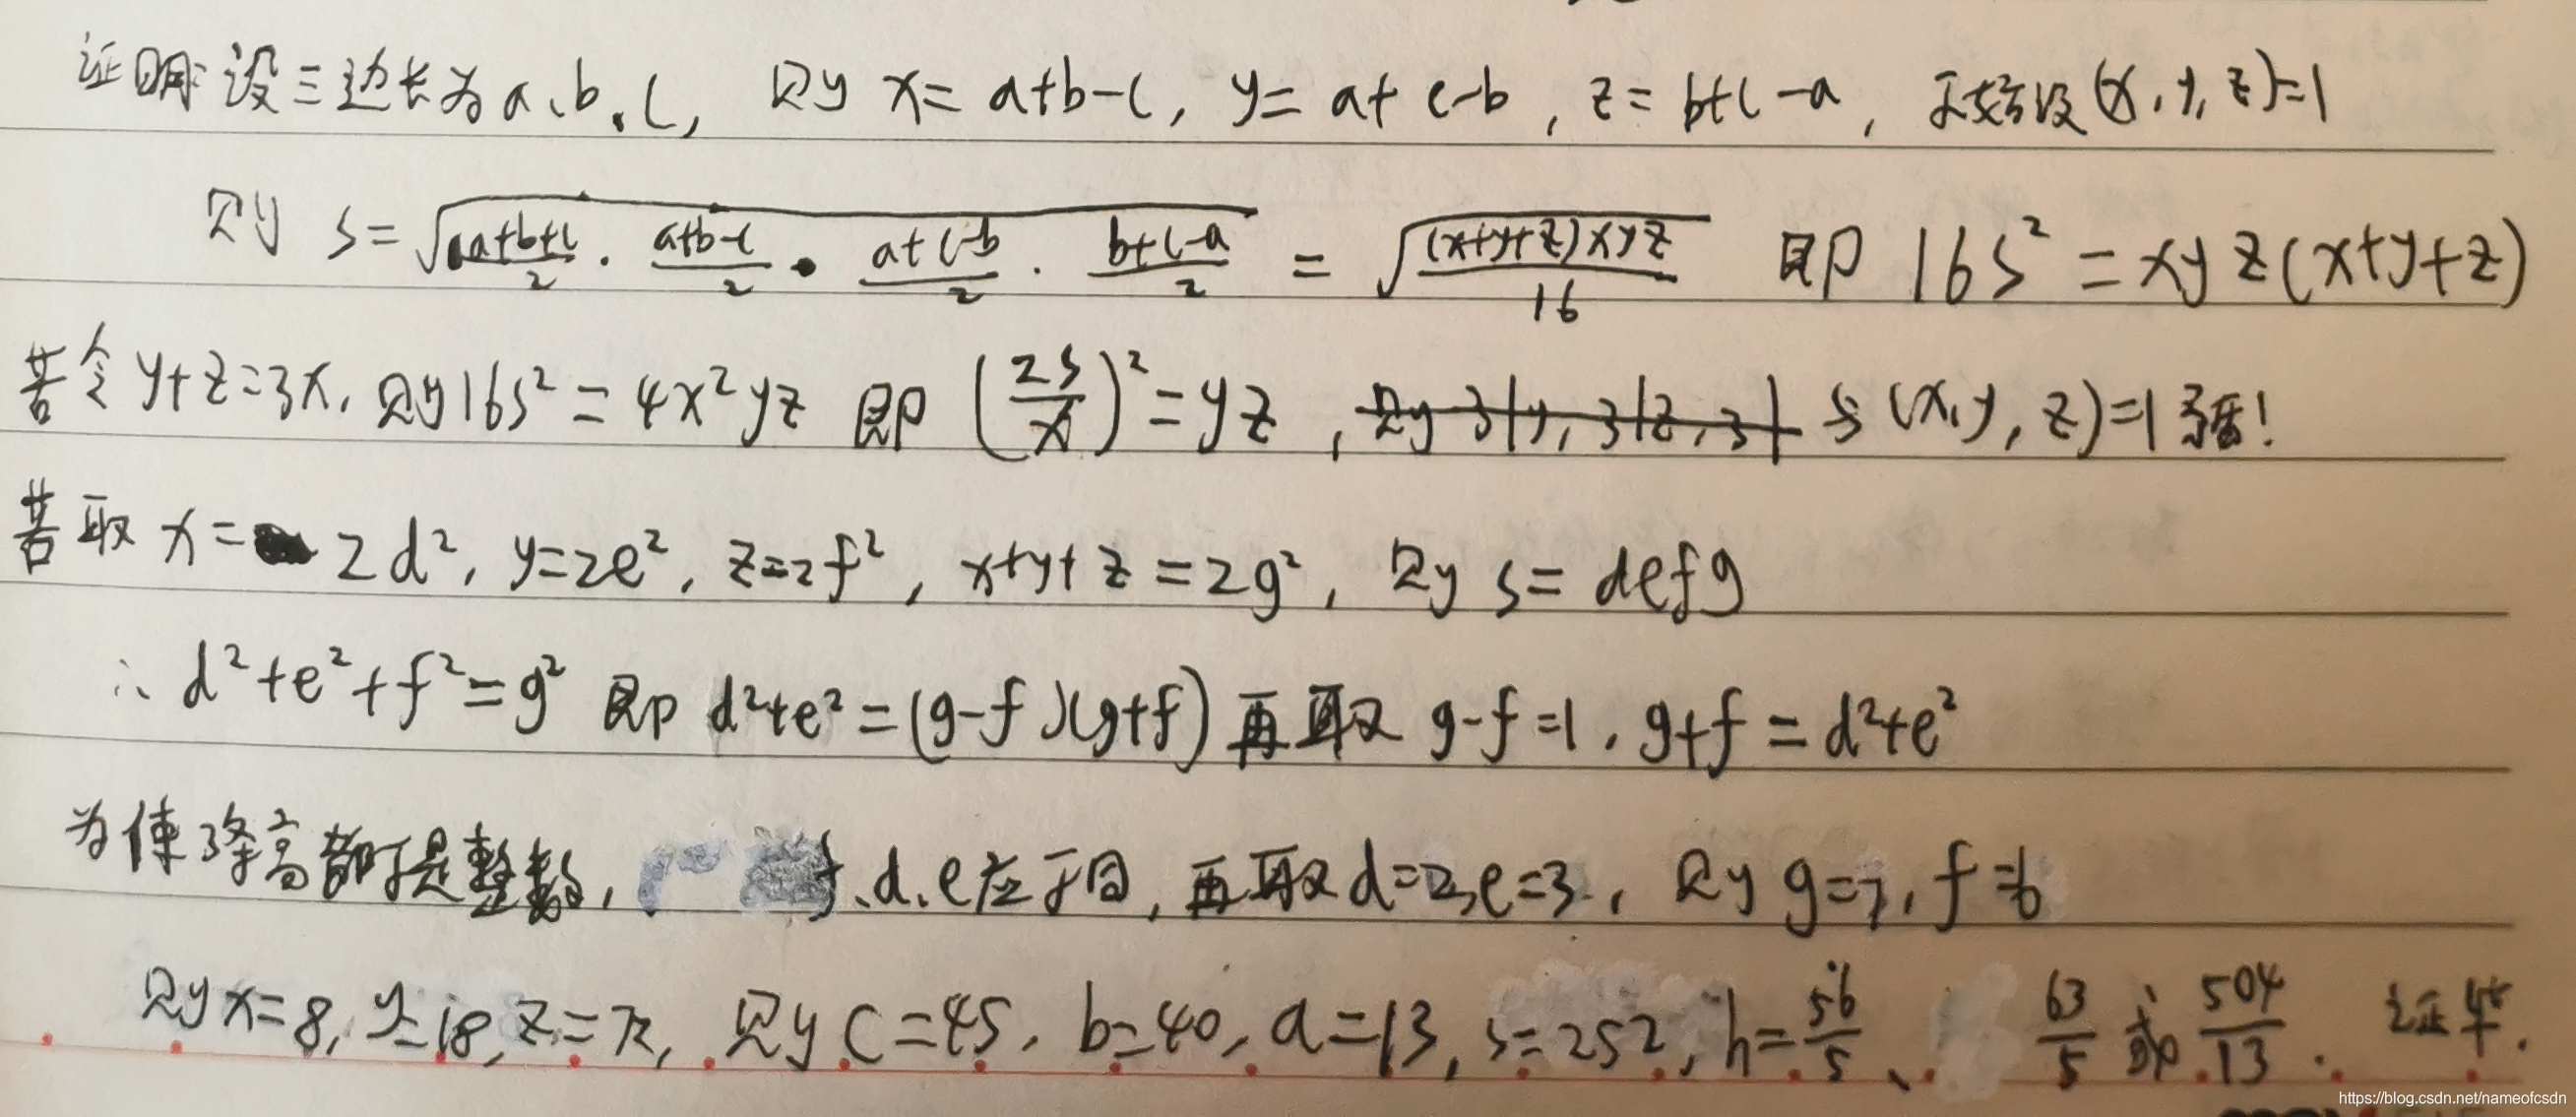 证明:设三边长为a、b、c, 则 x=a+b-c, y=a+c-b, z=b+c-a, 不妨设(x,y,z)=1
则 s=√(a+b+c)/2 · (a+b-c)/2 · (a+c-b)/2 · (b+c-a)/2 = √(x+y+z)xyz/16 即 16s²=xyz(x+y+z)
若令y+z=3x, 则16s²=4x²yz 即 (2s/x)²=yz, 则3|y, 3|z, 3| 与(x,y,z)=1矛盾!
若取 x=2d², y=2e², z=2f², x+y+z=2g², 则 s=defg
∴ d²+e²+f²=g² 即 d²+e²=(g-f)(g+f) 再取 g-f=1, g+f=d²+e²
为使3条高都不是整数, f、d、e应不同, 再取d=2,e=3, 则 g=7, f=6
则x=8, y=18, z=72, 则 c=45, b=40, a=13, s=252, h=56/5、63/5 或 504/13. 证毕.
https://blog.csdn.net/nameofcsdn